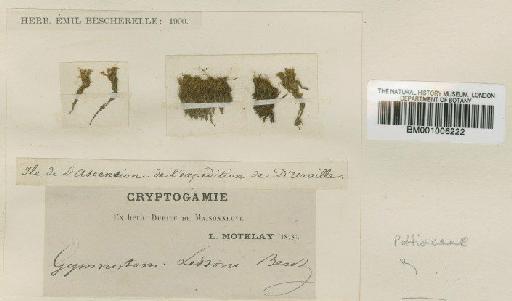 HERB. ÉMIL BESCHERELLE: 1900.
THE NATURAL HISTORY MUSEUM, LONDON
DEPARTMENT OF BOTANY
BM001006222
Ile de l'Ascension de l'expédition de D'Urville
CRYPTOGAMIE
Ex herb. DUPUY DE MAISONNEUVE
L. MOTELAY
Gymnostom. Lessoni Besch
Pottiaceae